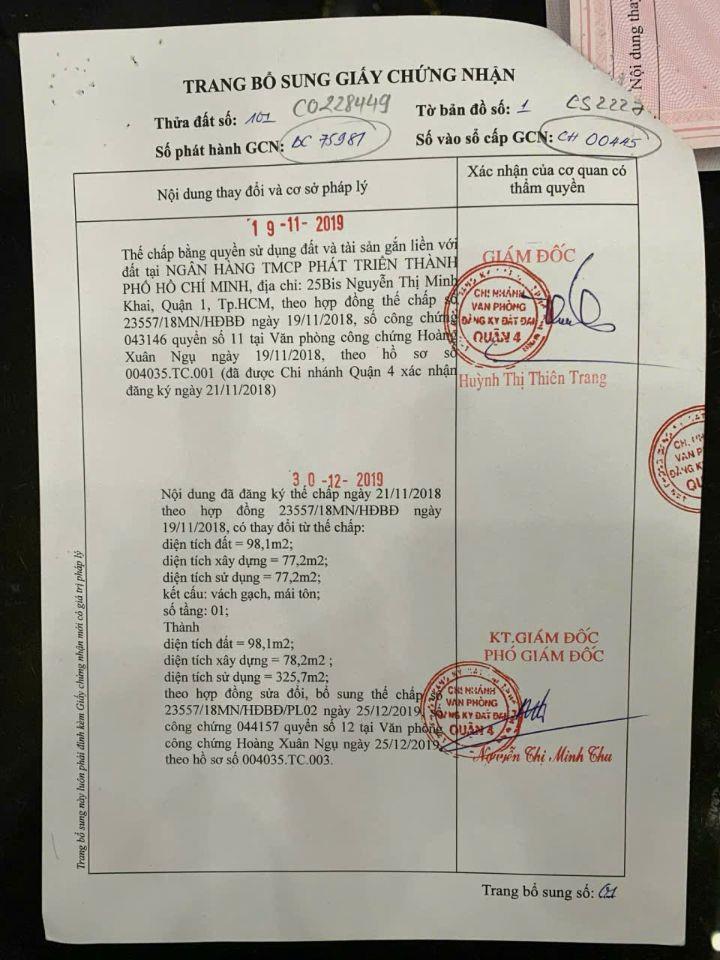 Nội dung tha
TRANG BỔ SUNG GIẤY CHỨNG NHẬN
CO228449
CS2227
Thửa đất số: 101
Tờ bản đồ số: 1
Số phát hành GCN: BC 75981
Số vào sổ cấp GCN: CH 00445
Nội dung thay đổi và cơ sở pháp lý
Xác nhận của cơ quan có
thẩm quyền
19-11-2019
Thế chấp bằng quyền sử dụng đất và tài sản gắn liền với
đất tại NGÂN HÀNG TMCP PHÁT TRIỂN THÀNH
PHỐ HỒ CHÍ MINH, địa chỉ: 25Bis Nguyễn Thị Minh
Khai, Quận 1, Tp.HCM, theo hợp đồng thế chấp số
23557/18MN/HĐBĐ ngày 19/11/2018, số công chứng
043146 quyển số 11 tại Văn phòng công chứng Hoàng
Xuân Ngụ ngày 19/11/2018, theo hồ sơ số
004035.TC.001 (đã được Chi nhánh Quận 4 xác nhận
đăng ký ngày 21/11/2018)
GIÁM ĐỐC
CHI NHÁNH
VĂN PHÒNG
ĐĂNG KÝ ĐẤT ĐAI
QUẬN 4
Huỳnh Thị Thiên Trang
CHI NH
VĂN PH
ĐĂNG KÝ Đ
QU
30-12-2019
Nội dung đã đăng ký thế chấp ngày 21/11/2018
theo hợp đồng 23557/18MN/HĐBĐ ngày
19/11/2018, có thay đổi từ thế chấp:
diện tích đất = 98,1m2;
diện tích xây dựng = 77,2m2;
diện tích sử dụng = 77,2m2;
kết cấu: vách gạch, mái tôn;
số tầng: 01;
Thành
diện tích đất = 98,1m2;
diện tích xây dựng = 78,2m2 ;
diện tích sử dụng = 325,7m2;
theo hợp đồng sửa đổi, bổ sung thế chấp số
23557/18MN/HĐBĐ/PL02 ngày 25/12/2019, số
công chứng 044157 quyển số 12 tại Văn phòng
công chứng Hoàng Xuân Ngụ ngày 25/12/2019,
theo hồ sơ số 004035.TC.003.
KT.GIÁM ĐỐC
PHÓ GIÁM ĐỐC
CHI NHÁNH
VĂN PHÒNG
ĐĂNG KÝ ĐẤT ĐAI
QUẬN 4
Nguyễn Thị Minh Thu
Trang bổ sung này luôn phải đính kèm Giấy chứng nhận mới có giá trị pháp lý
Trang bổ sung số: 01